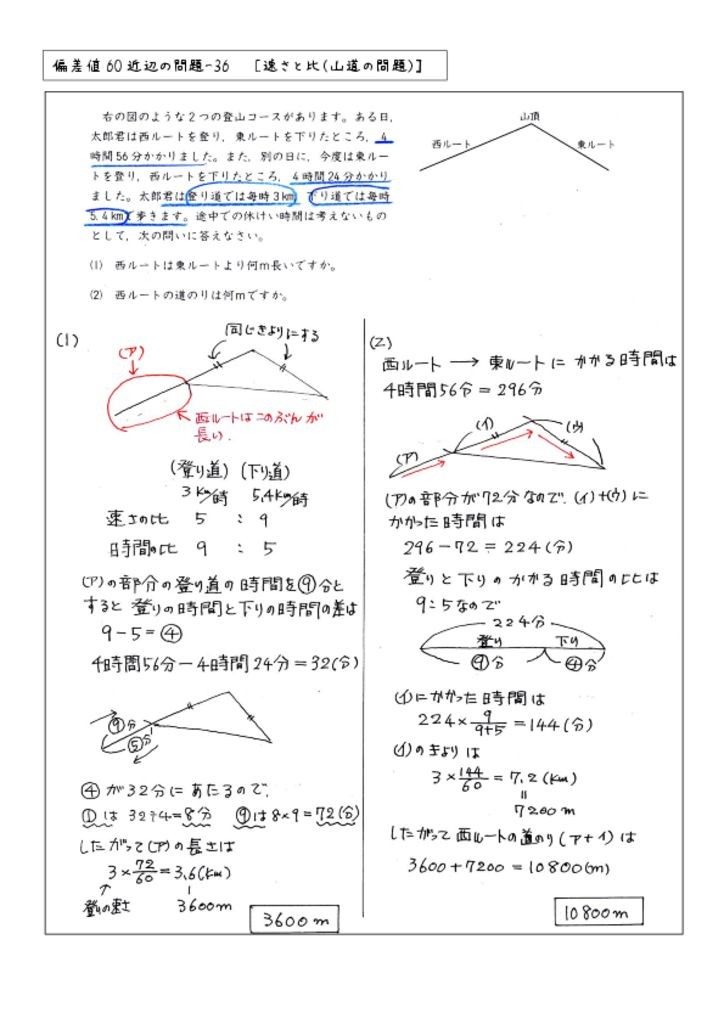 偏差値60近辺の問題-36 [速さと比(山道の問題)]
右の図のような2つの登山コースがあります。ある日,
太郎君は西ルートを登り,東ルートを下りたところ,4
時間56分かかりました。また,別の日に,今度は東ルー
トを登り,西ルートを下りたところ,4時間24分かかり
ました。太郎君は登り道では毎時3km 下り道では毎時
5.4kmで歩きます。途中での休けい時間は考えないもの
として,次の問いに答えなさい。
(1) 西ルートは東ルートより何m長いですか。
(2) 西ルートの道のりは何mですか。
山頂
西ルート
東ルート
(1)
同じきょりにする
(ア)
西ルートはこのぶんが
長い.
(登り道) (下り道)
3km/時 5.4km/時
速さの比 5 : 9
時間の比 9 : 5
(ア)の部分の登り道の時間を⑨分と
すると 登りの時間と下りの時間の差は
9-5=④
4時間56分-4時間24分=32(分)
⑨分
⑤分
④が32分にあたるので.
①は 32÷4=8分 ⑨は8×9=72(分)
したがって(ア)の長さは
3×72/60=3.6(km)
登りの速さ 3600m
3600m
(2)
西ルート → 東ルートに かかる時間は
4時間56分=296分
(イ)
(ウ)
(ア)
(ア)の部分が72分なので.(イ)+(ウ)に
かかった時間は
296-72=224(分)
登りと下りのかかる時間の比は
9:5なので
224分
登り 下り
⑨分 ④分
(イ)にかかった時間は
224×9/9+5=144(分)
(イ)のきょりは
3×144/60=7.2(km)
=
7200m
したがって西ルートの道のり(ア+イ)は
3600+7200=10800(m)
10800m